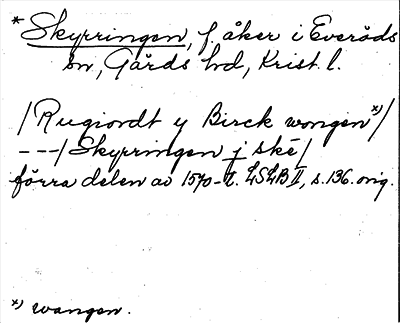 * Skyrringen, f. åker i Everöds
sn, Gärds hd, Krist. l.
/Rugiordt y Birck wongen *)/
---/Skyrringen j ské/
förra delen av 1570-t. LSLB II, s. 136. orig.
*) wangen.